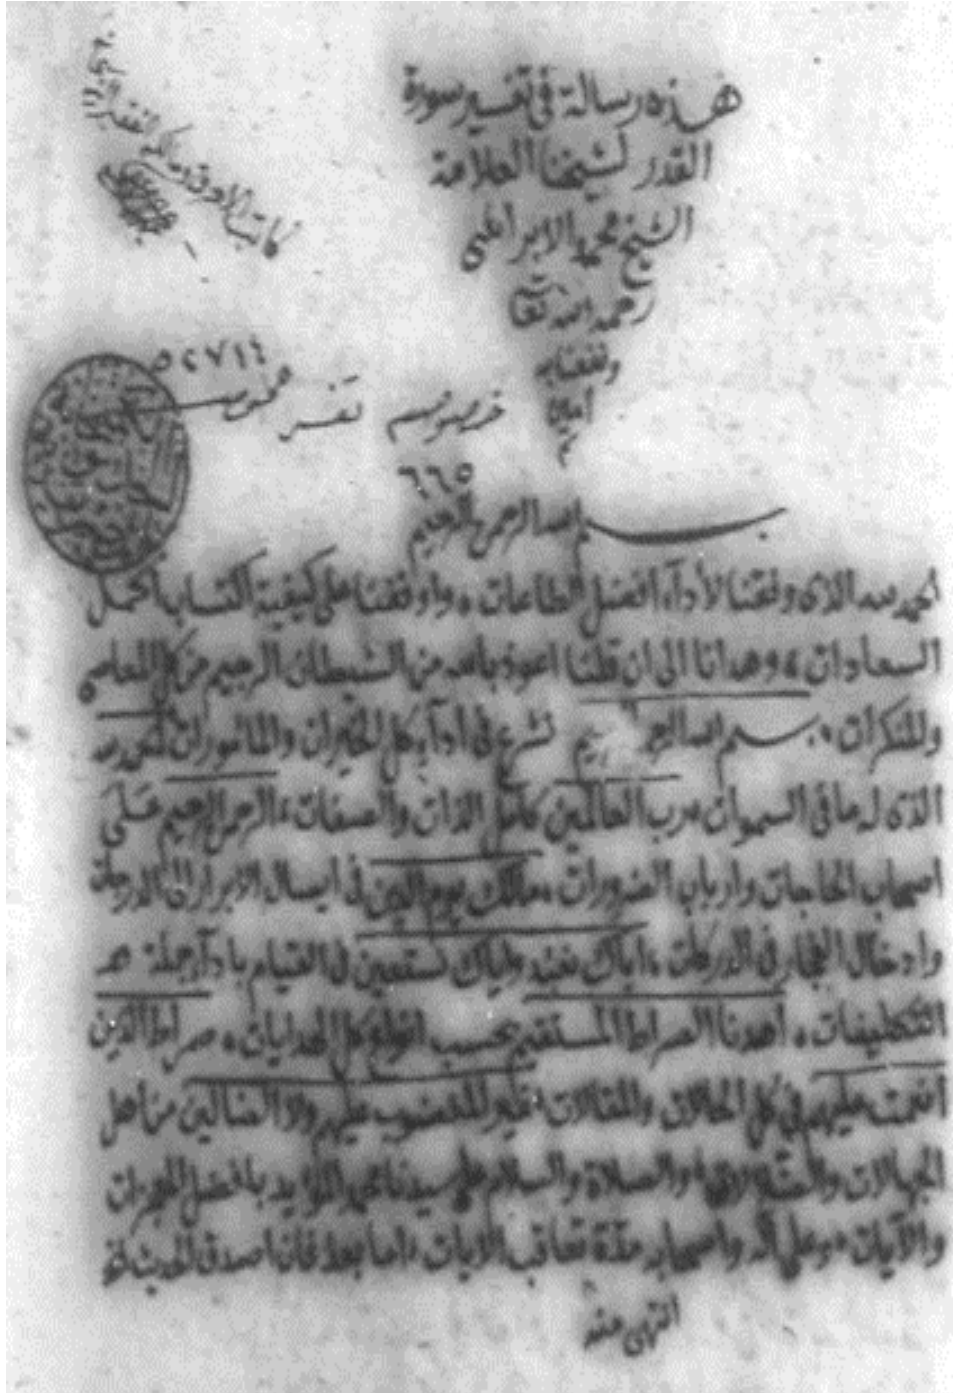 هذه رسالة في تفسير سورة
القدر لشيخنا العلامة
الشيخ محمد الابراشي
رحمه الله تعا
ونفعنا به
امين
م
٥٢٧١٤
خصوصيه تفسير
٦٦٥
بسم الله الرحمن الرحيم
الحمد لله الذي وفقنا لأدآء افضل الطاعات واوقفنا على كيفية اكتساب اكمل
السعادات وهدانا الى ان قلنا اعوذ بالله من الشيطان الرجيم من كل المعاصي
والمنكرات بسم الله الرحمن الرحيم نشرع في ادآء كل الخيرات والمامورات الحمد لله
الذي له ما في السموات رب العالمين كامل الذات والصفات الرحمن الرحيم على
اصحاب الحاجات وارباب الضرورات مالك يوم الدين في ايصال الابرار الى الدرجات
وادخال الفجار في الدركات اياك نعبد واياك نستعين في القيام بادآء جملة
التكليفات اهدنا الصراط المستقيم بحسب انواع كل الهدايات صراط الذين
انعمت عليهم في كل الحالات والمقالات غير المغضوب عليهم ولا الضالين من اهل
الجهالات والضلالات والصلاة والسلام على سيدنا محمد المؤيد بافضل المعجزات
والآيات وعلى آله واصحابه مدة تعاقب الاوقات اما بعد فان اصدق الحديث
انتهى منه